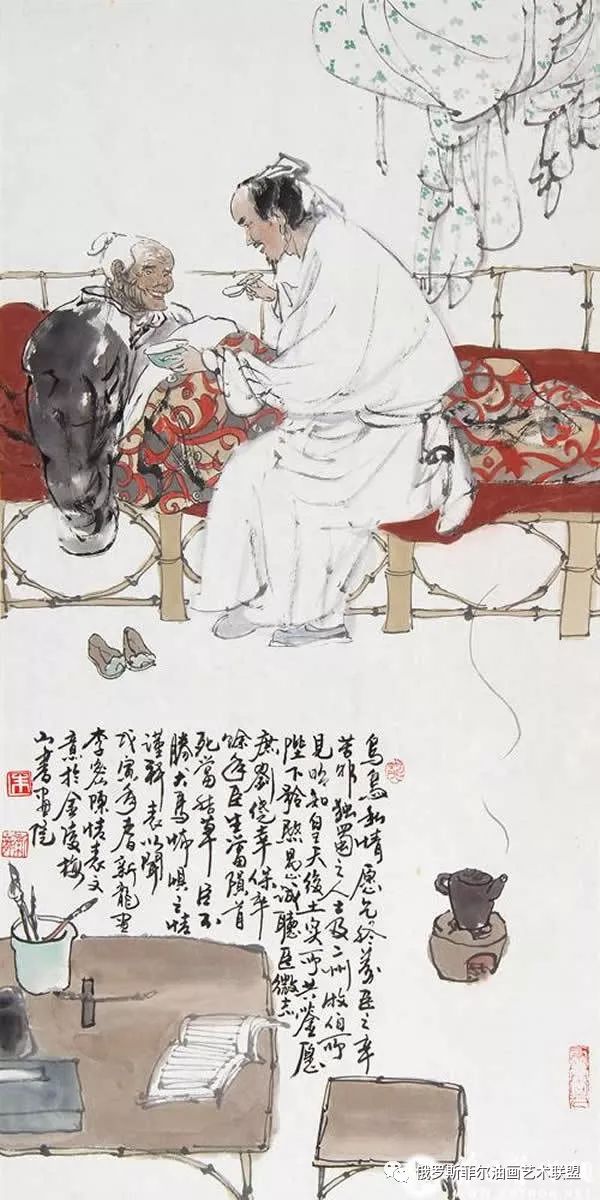 烏鳥私情愿乞終養臣之辛
苦非獨蜀之人士及二州牧伯所
見明知皇天後土實所共鑒愿
陛下矜愍愚誠聽臣微志
庶劉僥幸保卒
餘年臣生當隕首
死當結草臣不
勝犬馬怖懼之情
謹拜表以聞
戊寅年春新龍畫
李密陳情表文
意於金陵梅
山書畫院
朱
俄罗斯菲尔油画艺术联盟